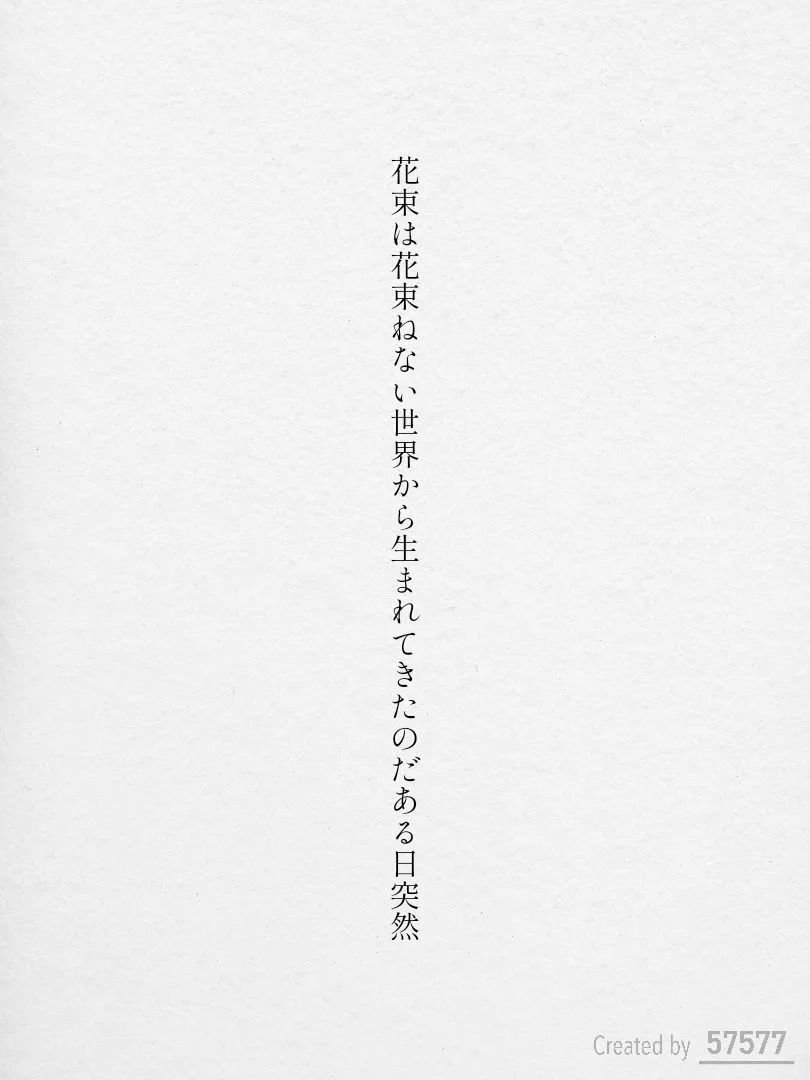 花束は花束ねない世界から生まれてきたのだある日突然
Created by 57577